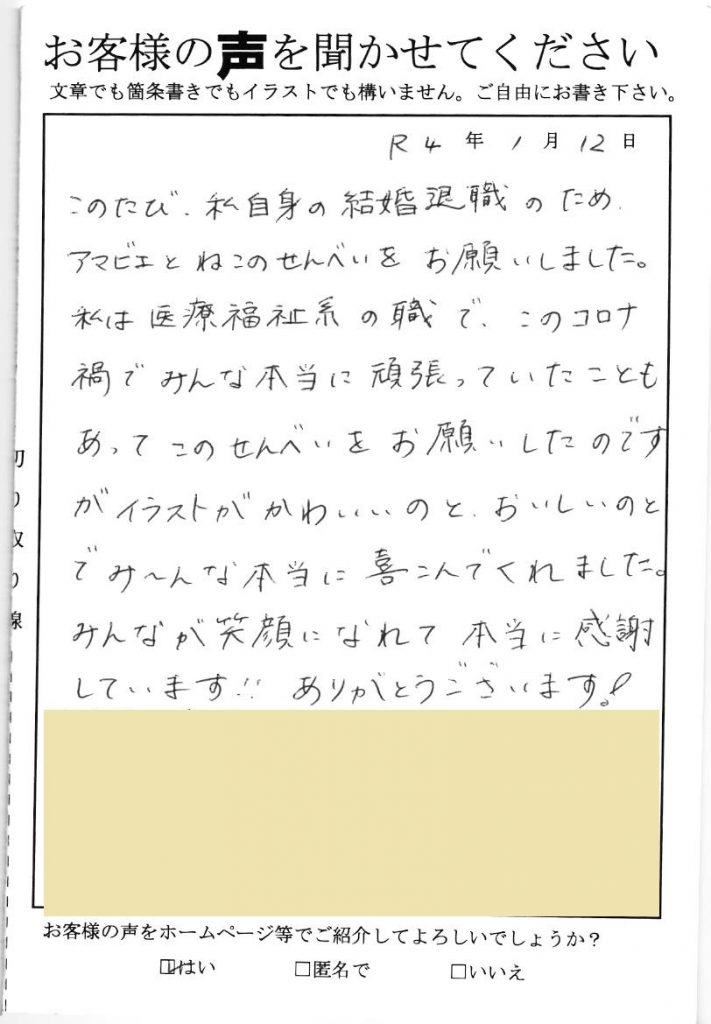 お客様の声を聞かせてください
文章でも箇条書きでもイラストでも構いません。ご自由にお書き下さい。
R4年1月12日
このたび、私自身の結婚退職のため、
アマビエとねこのせんべいをお願いしました。
私は医療福祉系の職で、このコロナ
禍でみんな本当に頑張っていたことも
あってこのせんべいをお願いしたのです
がイラストがかわいいのと、おいしいのと
でみ〜んな本当に喜こんでくれました。
みんなが笑顔になれて本当に感謝
しています!! ありがとうございます!
切り取り線
お客様の声をホームページ等でご紹介してよろしいでしょうか?
☑はい □匿名で □いいえ